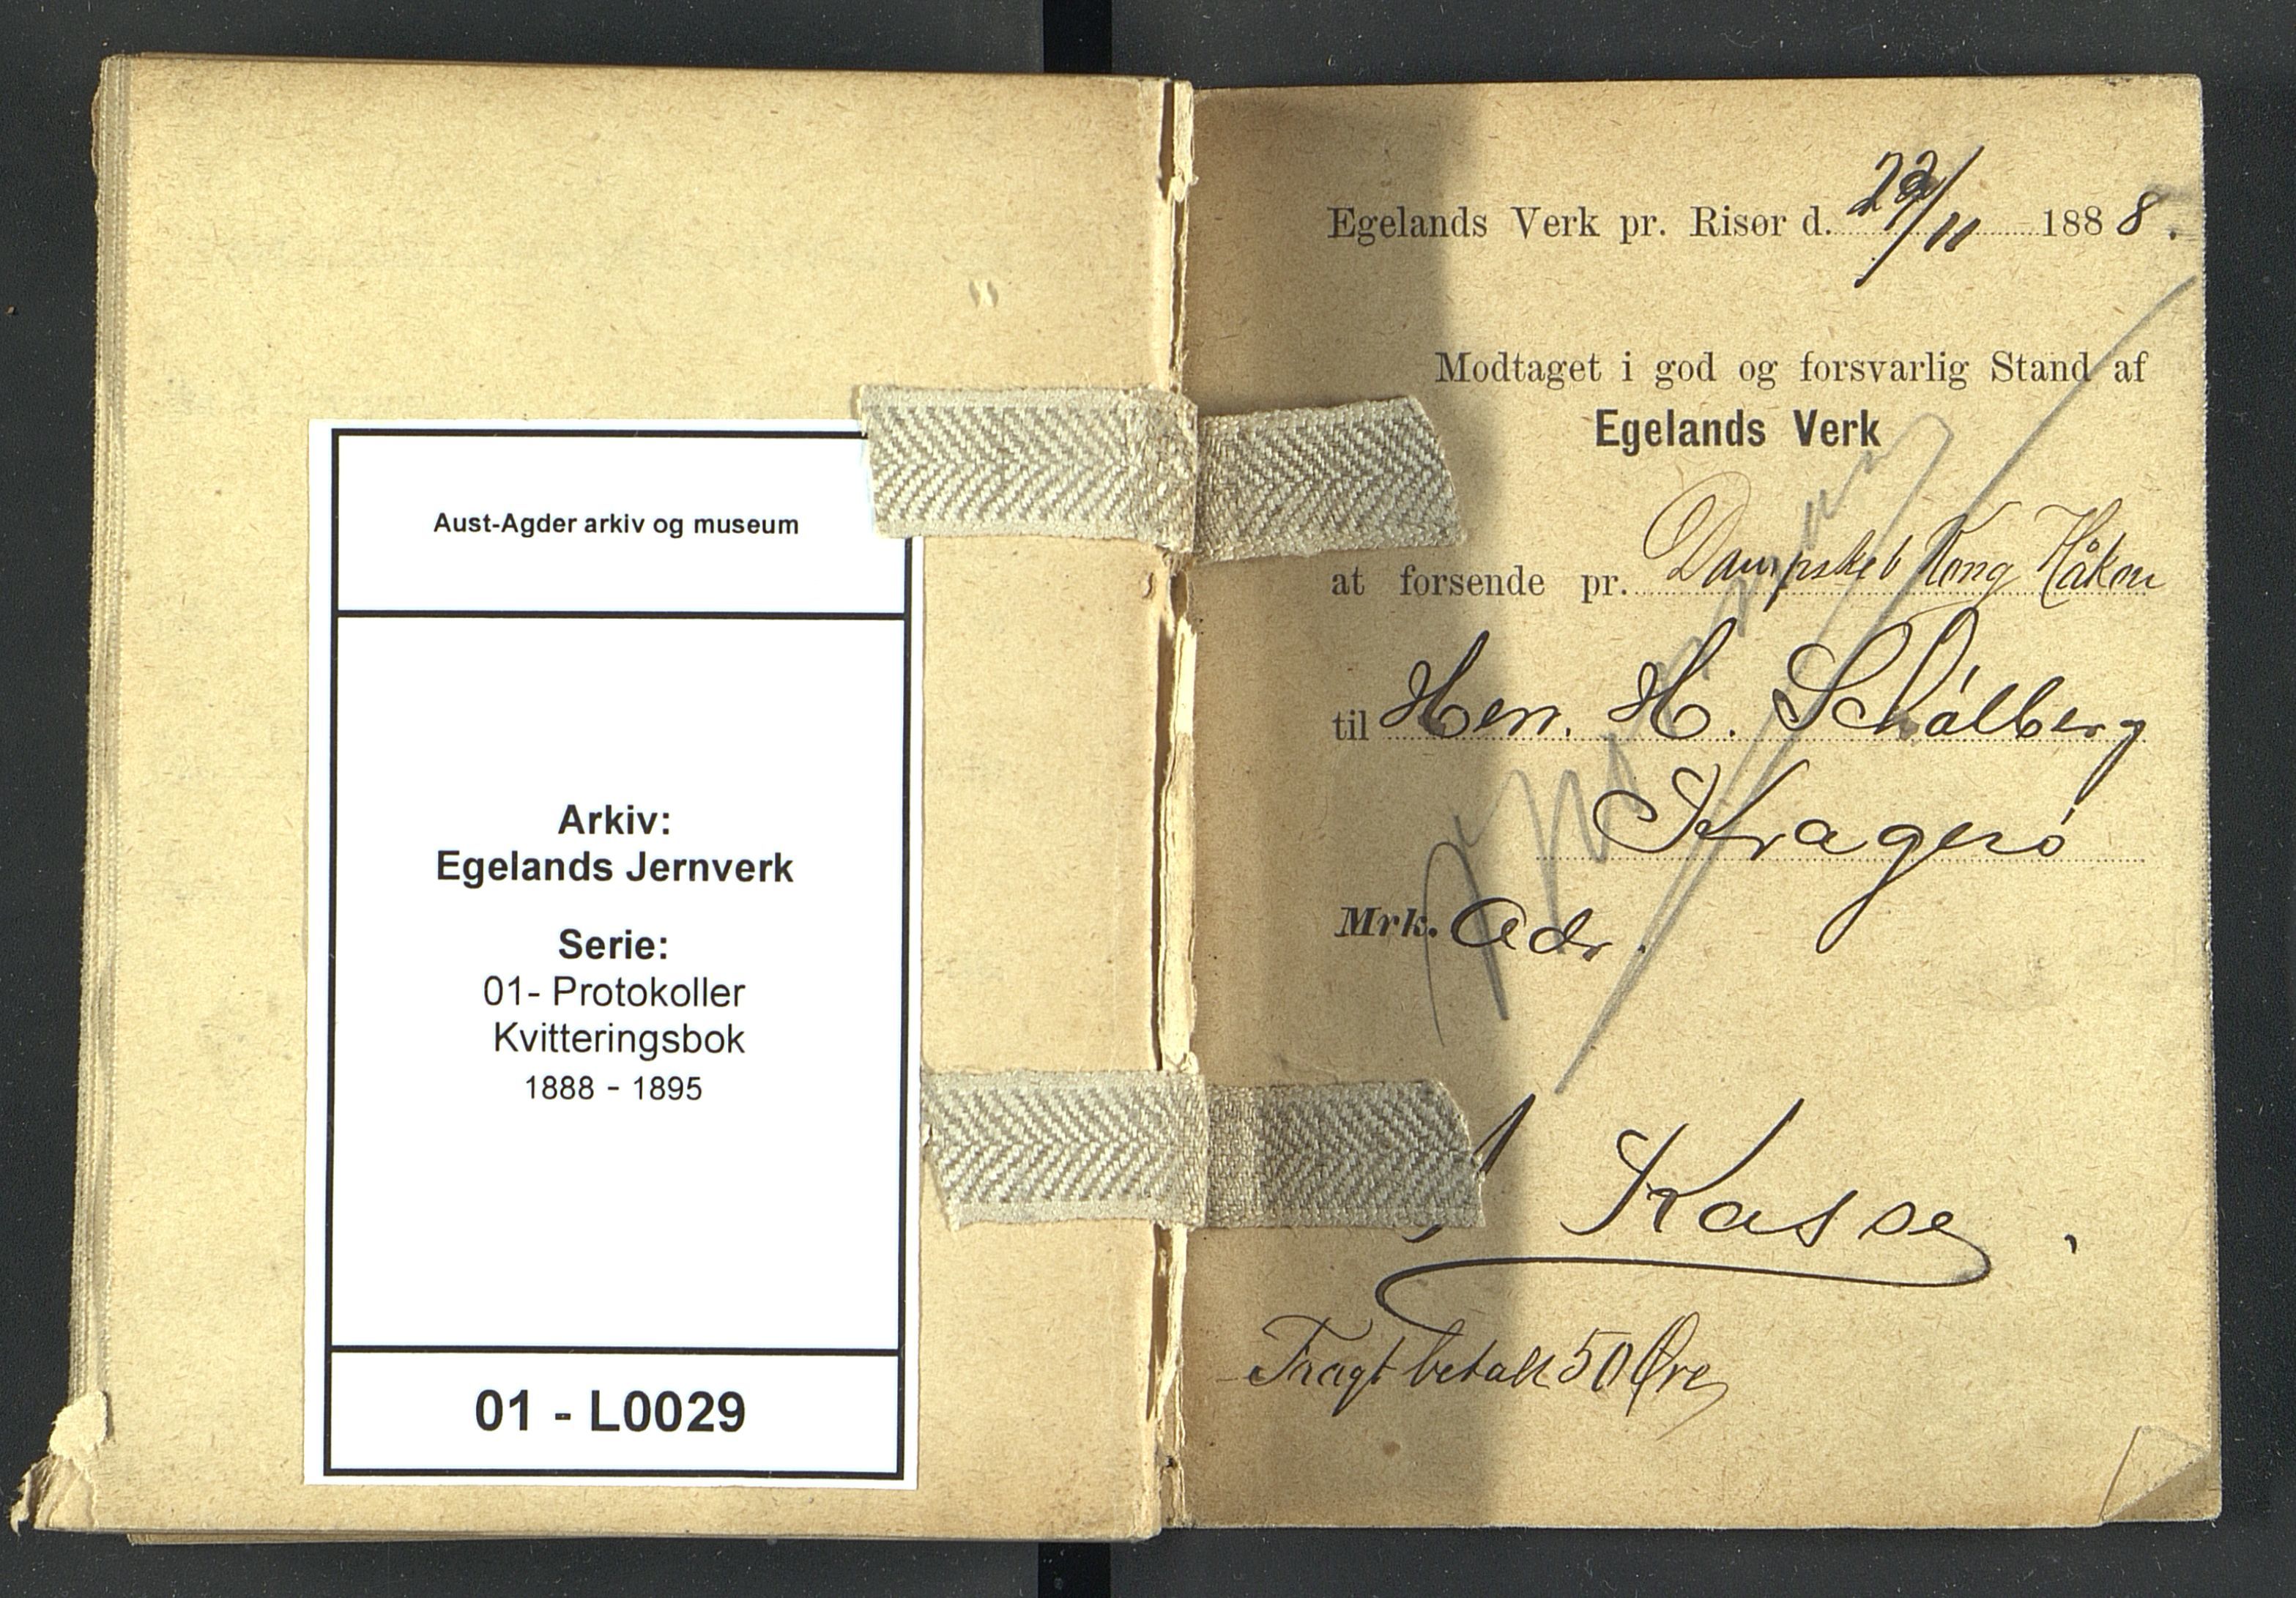 Aust-Agder arkiv og museum
Arkiv:
Egelands Jernverk
Serie:
01- Protokoller
Kvitteringsbok
1888 - 1895
01 - L0029
Egelands Verk pr. Risør d. 22/11 1888.
Modtaget i god og forsvarlig Stand af
Egelands Verk
at forsende pr. Dampskib Kong Håkon
til Herr. H. Schålberg
Kragerø
Mrk. Adr.
1 Kasse
Fragt betalt 50 Øre